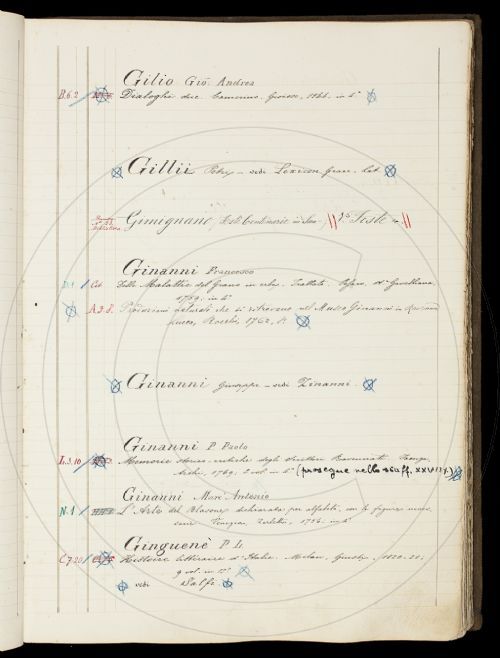 Gilio Gio. Andrea
B.6.2 Dialoghi due. Camerino. Gioioso, 1564. in 4°
Gillii Petri – vedi Lexicon Graec. Lat
Gimignano, Feste
Ginanni Francesco
Cat. Delle Malattie del Grano in erba. Trattato. Pesaro,
1759. in 4°
A.3.8. Produzioni naturali che si ritrovano nel Museo Ginanni in Ravenna
Lucca, Rocchi, 1762, f.
Ginanni Giuseppe – vedi Zinanni.
Ginanni P. Paolo
L.3.10 Memorie storico-critiche degli Scrittori Ravennati. Faenza
Archi, 1769. 2 vol. in 4° (prosegue nello scaff. XXVIII.)
Ginanni Marc' Antonio
N.1 L'Arte del Blasone dichiarata per alfabeto, con le figure
Venezia, Zerletti, 1756. in 4°
Ginguenè P. L.
C.7.20 Histoire littéraire d'Italie. Milan, Giusti, 1820-21.
9 vol. in 12°
vedi Salfi